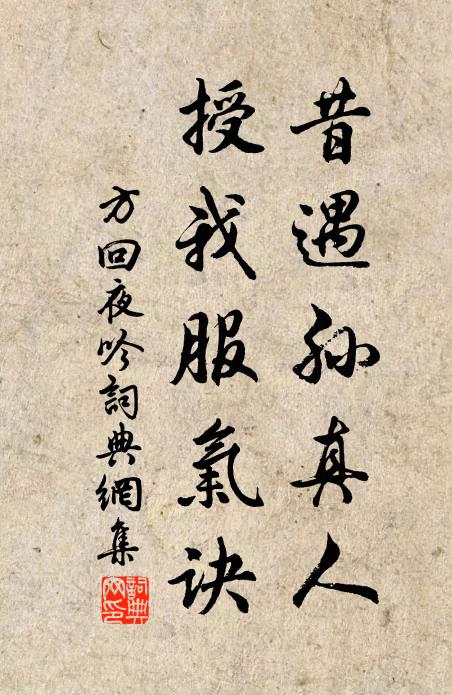 昔遇孙真人
授我服氣诀
方回夜吟詞典網集
詞典网印